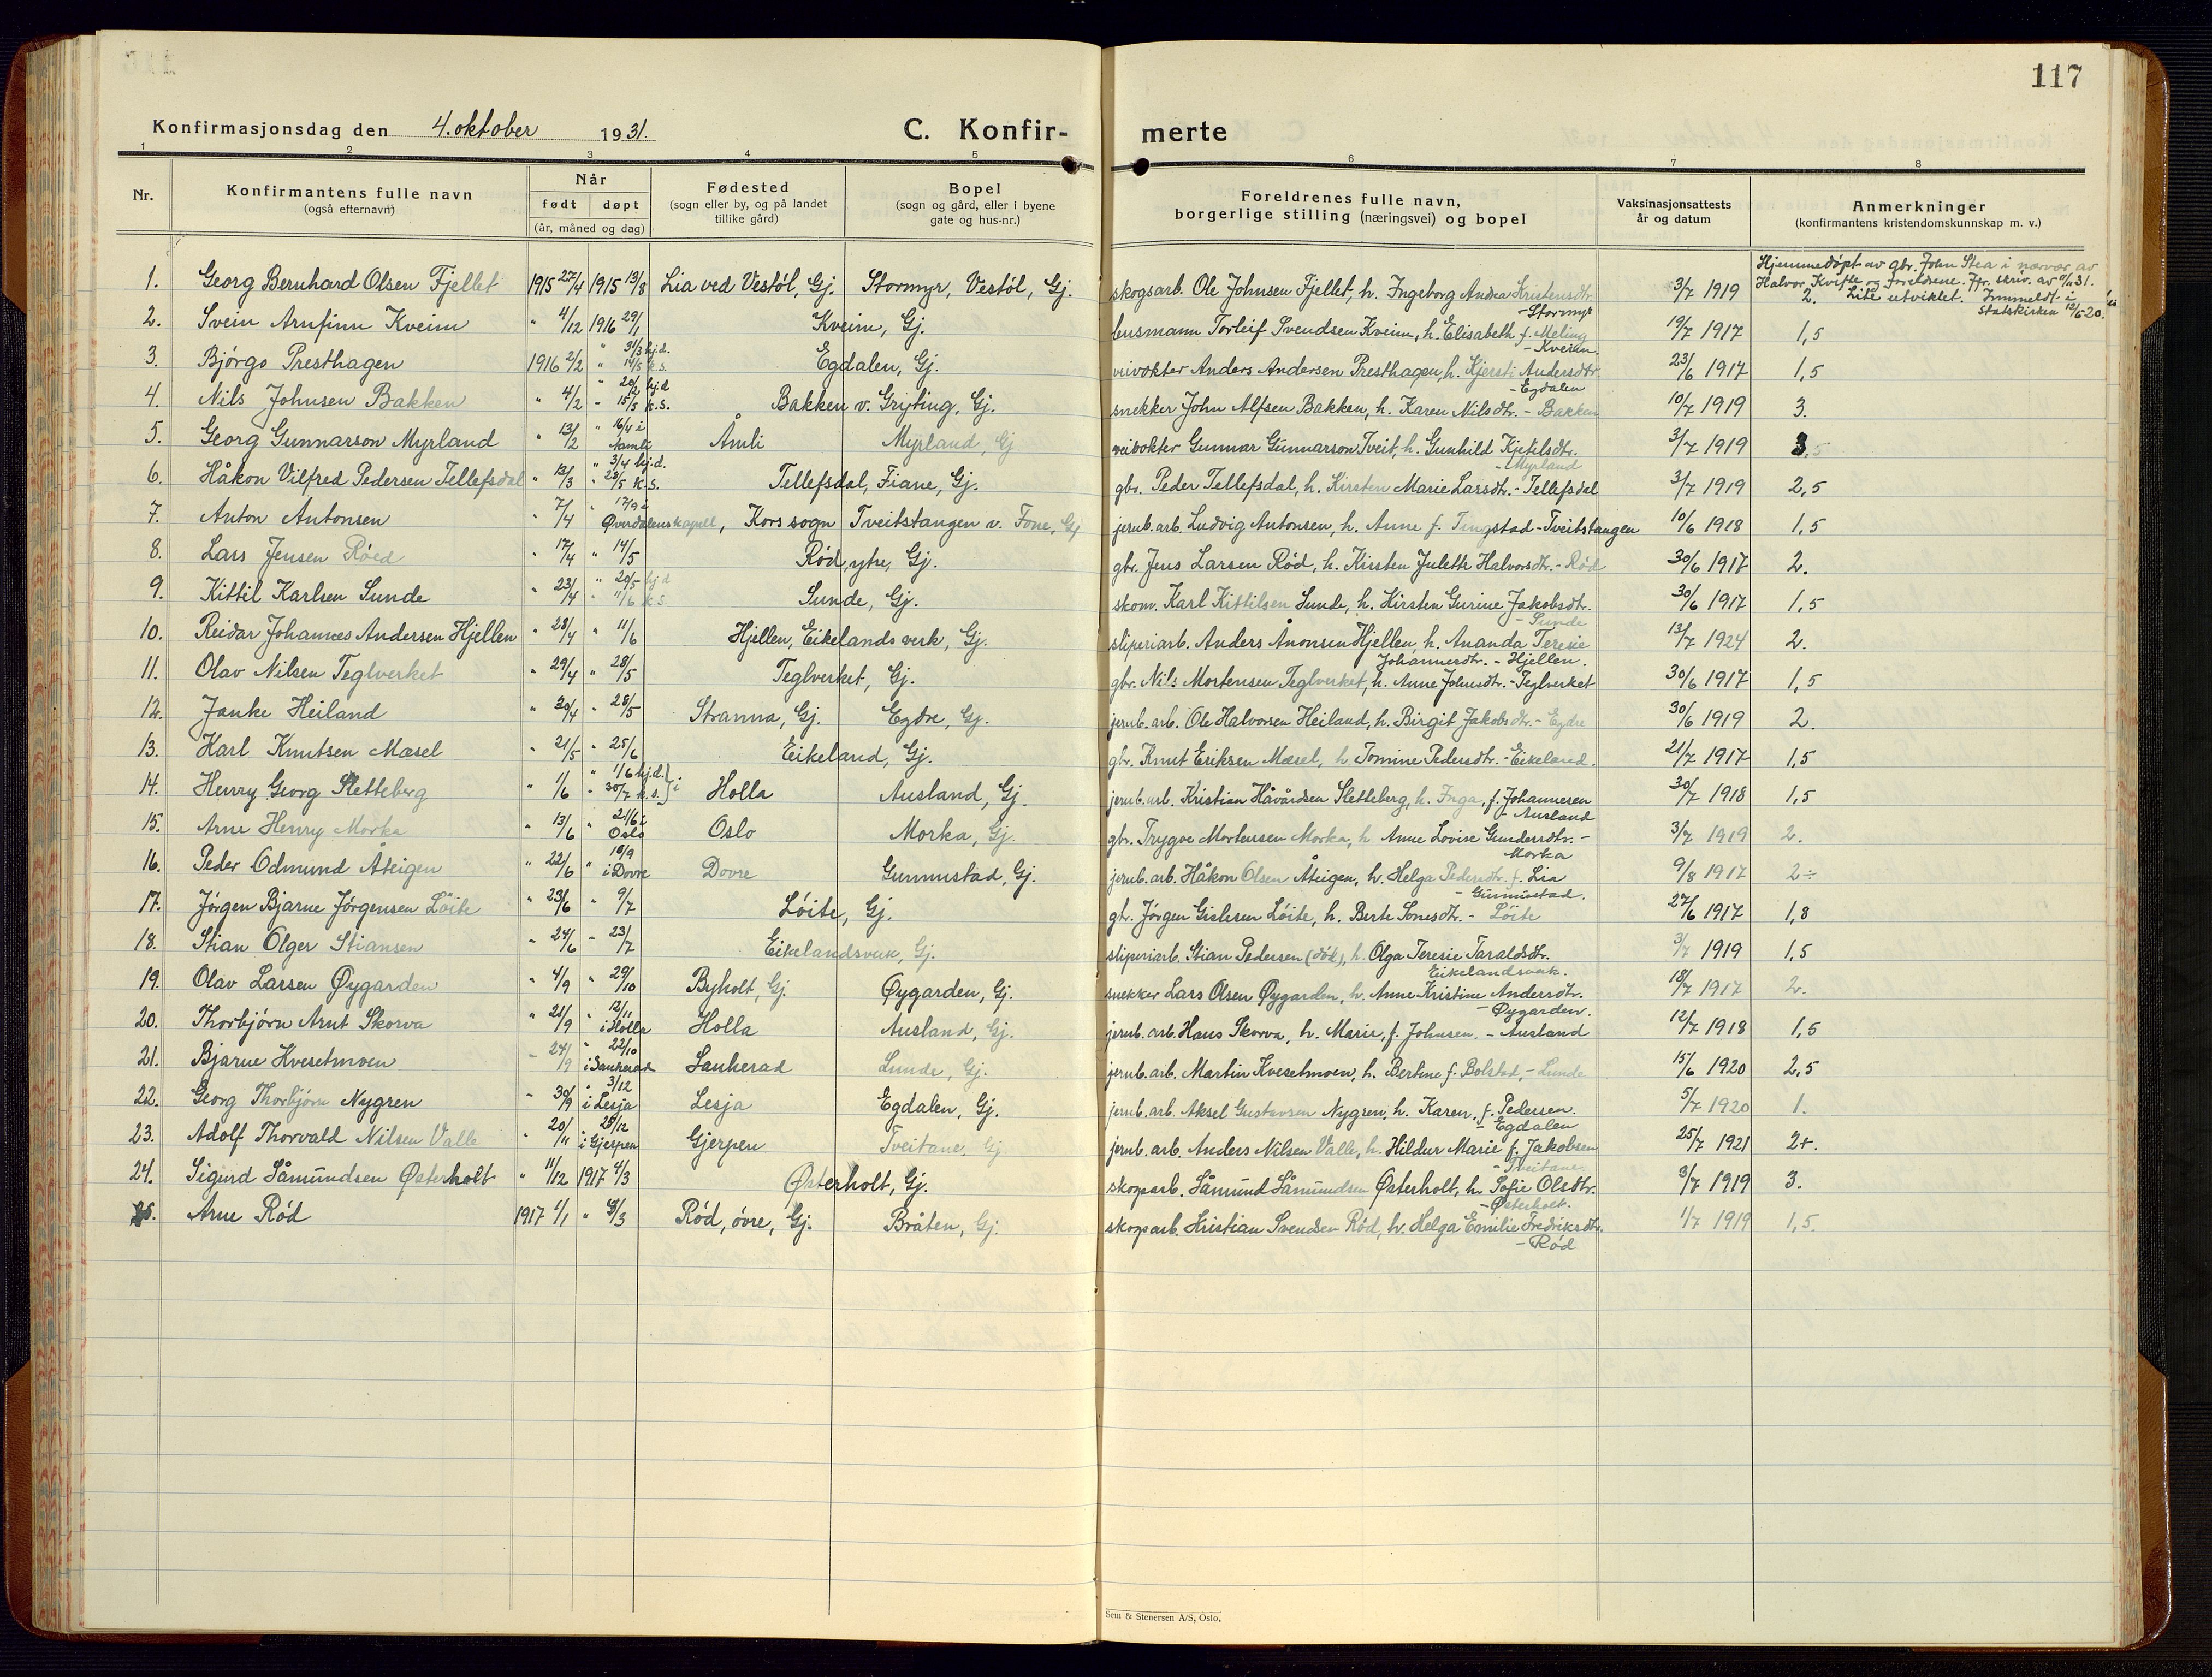 117
Konfirmasjonsdag den 4. oktober 1931. C. Konfir- merte
1 2 3 4 5 6 7 8
Nr. Konfirmantens fulle navn (også efternavn) Når født døpt (år, måned og dag) Fødested (sogn eller by, og på landet tillike gård) Bopel (sogn og gård, eller i byene gate og hus-nr.) Foreldrenes fulle navn, borgerlige stilling (næringsvei) og bopel Vaksinasjonsattests år og datum Anmerkninger (konfirmantens kristendomskunnskap m. v.)
1. Georg Bernhard Olsen Fjellet 1915 27/4 1915 13/8 Lia ved Vestøl, Gj. Stormyr, Vestøl, Gj. skogsarb. Ole Johnsen Fjellet, h. Ingeborg Andrea Kristensdtr. - Stormyr 3/7 1919 Hjemmedøpt av gbr. John Stea i nærvær av Halvor Kvifte og foreldrene. Jfr. skriv. av 11/1131. 2. Lite utviklet. Innmeldt i statskirken 13/6 20.
2. Svein Arnfinn Kveim " 4/12 1916 29/1 Kveim, Gj. lensmann Torleif Svendsen Kveim, h. Elisabeth f. Meling - Kveim. 19/7 1917 1,5
3. Bjørgo Presthagen 1916 2/2 " 31/3 hj.d. " 14/5 k.s. Egdalen, Gj. veivokter Anders Andersen Presthagen, h. Kjersti Andersdtr. - Egdalen 23/6 1917 1,5
4. Nils Johnsen Bakken " 4/2 " 20/2 hj.d " 15/5 k.s. Bakken v. Gryting, Gj. snekker John Alfsen Bakken, h. Karen Nilsdtr. - Bakken 10/7 1919 3.
5. Georg Gunnarson Myrland " 13/2 " 16/4 i Åmli Åmli Myrland, Gj veivokter Gunnar Gunnarson Tveit, h. Gunhild Kjetilsdtr. - Myrland 3/7 1919
6. Håkon Vilfred Pedersen Tellefsdal " 13/3 " 3/4 hj.d. " 28/5 k.s. Tellefsdal, Fiane, Gj. gbr. Peder Tellefsdal, h. Kirsten Marie Larsdtr. - Tellefsdal 3/7 1919 2,5
7. Anton Antonsen " 7/4 " 17/9 i Øverdalens kapell, Kors sogn Tveitstangen v. Fone, Gj jernb.arb. Ludvig Antonsen, h. Anne f. Tingstad - Tveitstangen 10/6 1918 1,5
8. Lars Jensen Røed " 17/4 " 14/5 Rød, ytre, Gj. gbr. Jens Larsen Rød, h. Kirsten Julette Halvorsdtr. - Rød 30/6 1917 2.
9. Kittil Karlsen Sunde " 23/4 " 20/5 hj.d " 11/6 k.s Sunde, Gj. skom. Karl Kittilsen Sunde, h. Kirsten Gurine Jakobsdtr. - Sunde 30/6 1917 1,5
10. Reidar Johannes Andersen Hjellen " 28/4 " 11/6 Hjellen, Eikelands verk, Gj. sliperiarb. Anders Ånonsen Hjellen, h. Ananda Teresie Johannesdtr. - Hjellen. 13/7 1924 2.
11. Olav Nilsen Teglverket " 29/4 " 28/5 Teglverket, Gj. gbr. Nils Mortensen Teglverket, h. Anne Johnsdtr. - Teglverket 30/6 1917 1,5
12. Janke Heiland " 30/4 " 28/5 Stranna, Gj. Egdre, Gj. jernb. arb. Ole Halvorsen Heiland, h. Birgit Jakobsdtr. - Egdre 30/6 1919 2.
13. Karl Knutsen Mæsel " 21/5 " 25/6 Eikeland, Gj. gbr. Knut Eriksen Mæsel, h. Tomine Pedersdtr. - Eikeland. 21/7 1917 1,5
14. Henry Georg Sletteberg " 1/6 " 1/6 hj.d. " 30/7 k.s. } i Holla Ausland, Gj. jernb. arb. Kristian Håvårdsen Sletteberg, h. Inga, f. Johannesen - Ausland 30/7 1918 1,5
15. Arne Henry Morka " 13/6 " 21/6 i Oslo Oslo Morka, Gj. gbr. Trygve Mortensen Morka, h. Anne Lovise Gundersdtr. - Morka 3/7 1919 2.
16. Peder Odmund Åteigen " 22/6 " 10/9 i Dovre Dovre Gunnustad, Gj. jernb. arb. Håkon Olsen Åteigen, h. Helga Pedersdtr. f. Lia - Gunnustad. 9/8 1917 2÷
17. Jørgen Bjarne Jørgensen Løite " 23/6 " 9/7 Løite, Gj. gbr. Jørgen Gislesen Løite, h. Berte Tonesdtr. - Løite 27/6 1917 1,8
18. Stian Olger Stiansen " 24/6 " 23/7 Eikelandsverk, Gj. sliperiarb. Stian Pedersen (død), h. Olga Teresie Taraldsdtr. Eikelandsverk. 3/7 1919 1,5
19. Olav Larsen Øygarden " 4/9 " 29/10 Byholt, Gj. Øygarden, Gj. snekker Lars Olsen Øygarden, h. Anne Kristine Andersdtr. - Øygarden. 18/7 1917 2.
20. Thorbjørn Arnt Skorva " 21/9 " 12/11 i Holla Holla Ausland, Gj. jernb. arb. Hans Skorva, h. Marie, f. Johnsen. - Ausland 12/7 1918 1,5
21. Bjarne Kvesetmoen " 24/9 " 22/10 i Sauherad Sauherad Lunde, Gj. jernb. arb. Martin Kvesetmoen, h. Bertine f. Bolstad, - Lunde 15/6 1920 2,5
22. Georg Thorbjørn Nygren " 30/9 " 3/12 i Lesja Lesja Egdalen, Gj. jernb. arb. Aksel Gustavsen Nygren, h. Karen, f. Pedersen. - Egdalen 5/7 1920 1.
23. Adolf Thorvald Nilsen Valle " 20/11 " 25/12 i Gjerpen Gjerpen Tveitane, Gj. jernb. arb. Anders Nilsen Valle, h. Hildur Marie f. Jakobsen - Tveitane. 25/7 1921 2+.
24. Sigurd Såmundsen Østerholt " 11/12 1917 4/3 Østerholt, Gj. skogsarb. Såmund Såmundsen Østerholt, h. Sofie Olsdtr. - Østerholt. 3/7 1919 3.
25. Arne Rød 1917 1/1 " 4/3 Rød, øvre, Gj. Bråten, Gj. skogsarb. Kristian Svendsen Rød, h. Helga Emilie Fredriksdtr. - Rød 1/7 1919 1,5.
Sem & Stenersen A/S, Oslo.